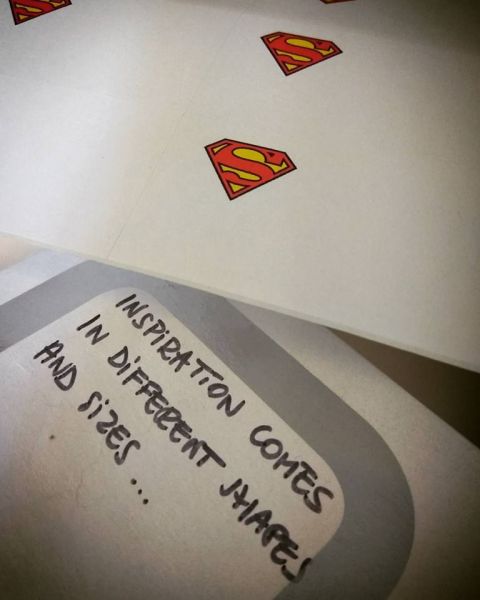 INSPIRATION COMES
IN DIFFERENT SHAPES
AND SIZES...